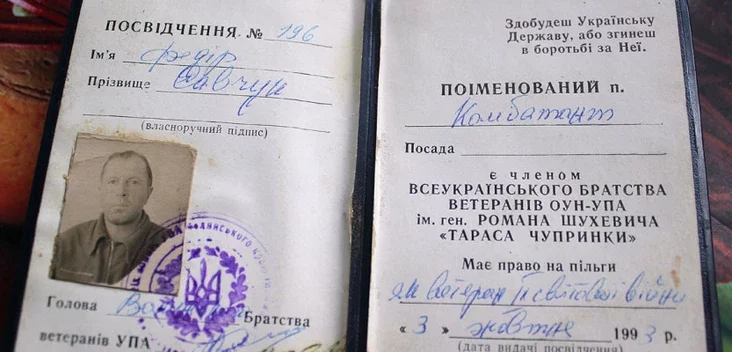 ПОСВІДЧЕННЯ № 196
Ім'я Федір
Прізвище Савчук
(власноручний підпис)
Голова
Братства
ветеранів УПА
Здобудеш Українську
Державу, або згинеш
в боротьбі за Неї.
ПОІМЕНОВАНИЙ п.
Комбатант
Посада
є членом
ВСЕУКРАЇНСЬКОГО БРАТСТВА
ВЕТЕРАНІВ ОУН-УПА
ім. ген. РОМАНА ШУХЕВИЧА
«ТАРАСА ЧУПРИНКИ»
Має право на пільги
як ветеран ІІ світової війни
« 3 » жовтня 1993 р.
(дата видачі посвідчення)